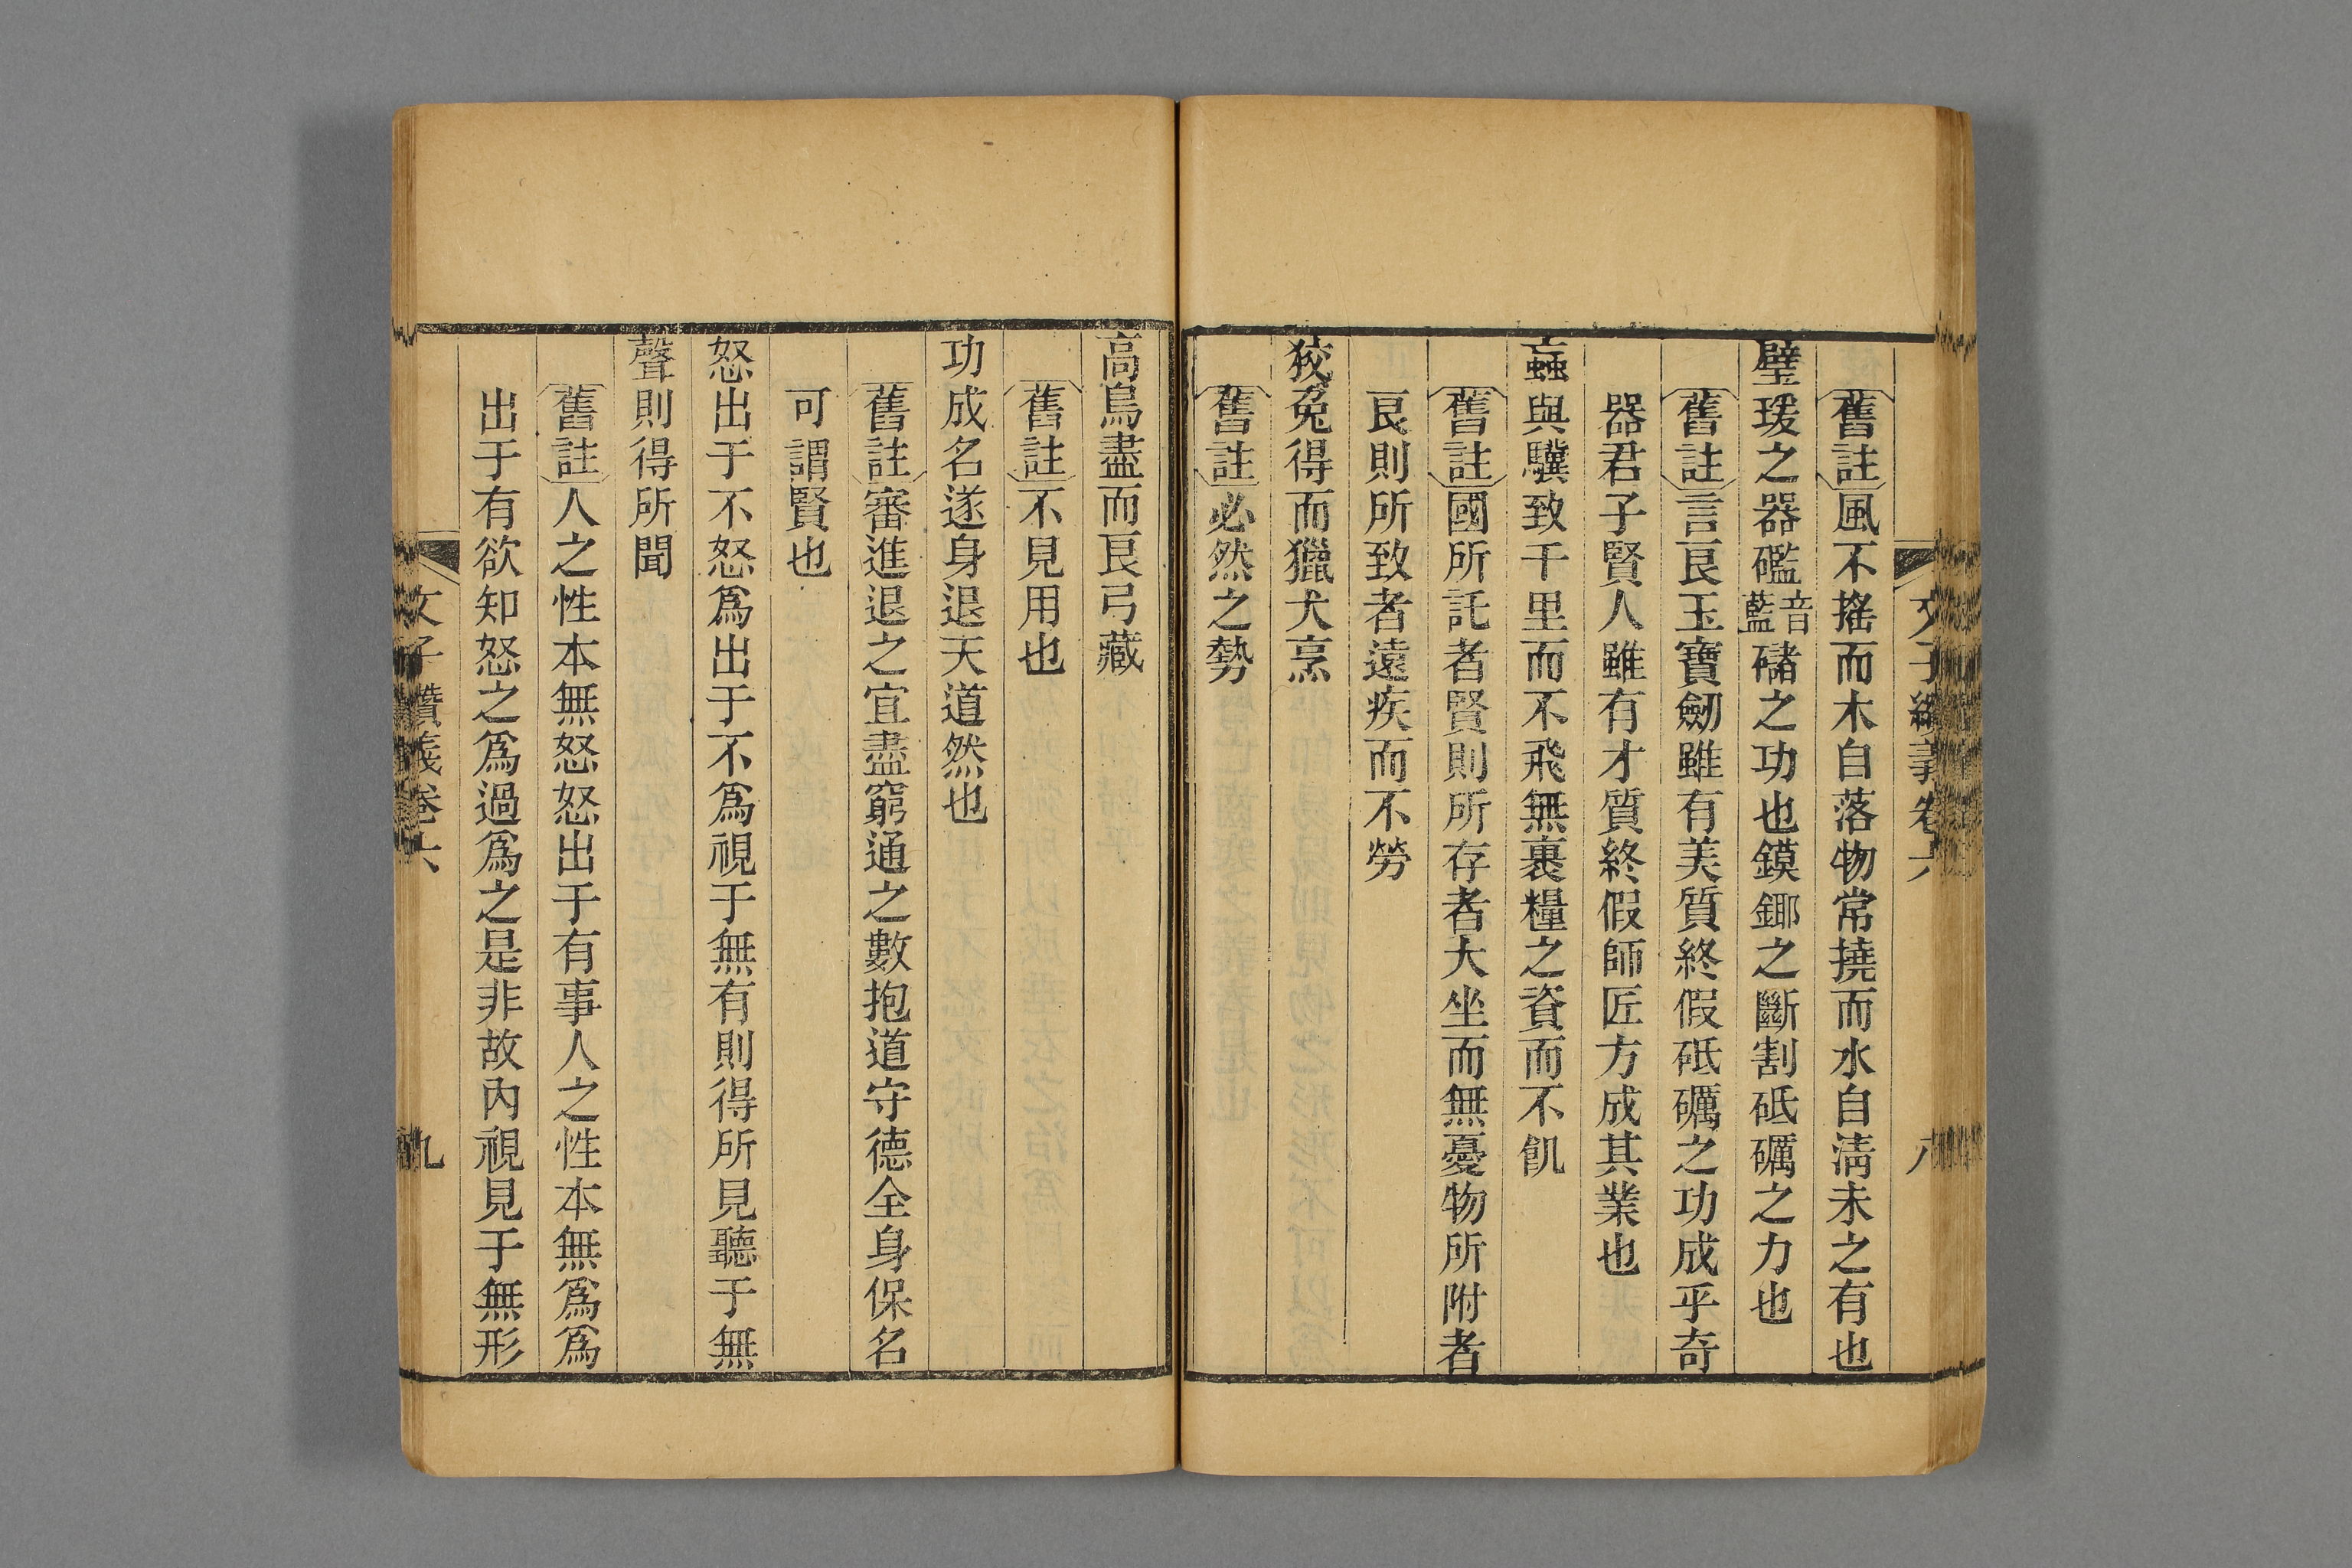 舊註風不搖而木自落物常撓而水自淸未之有也
璧瑗之器礛音藍䃴之功也鏌鎁之斷割砥礪之力也
舊註言艮玉寶劒雖有美質終假砥礪之功成乎奇
器君子賢人雖有才質終假師匠方成其業也
蝱與驥致千里而不飛無裹糧之資而不飢
舊註國所託者賢則所存者大坐而無憂物所附者
艮則所致者遠疾而不勞
狡兔得而獵犬烹
舊註必然之勢
高鳥盡而艮弓藏
舊註不見用也
功成名遂身退天道然也
舊註審進退之宜盡窮通之數抱道守德全身保名
可謂賢也
怒出于不怒爲出于不爲視于無有則得所見聽于無
聲則得所聞
舊註人之性本無怒怒出于有事人之性本無爲爲
出于有欲知怒之爲過爲之是非故內視見于無形
文子纘義卷六
九